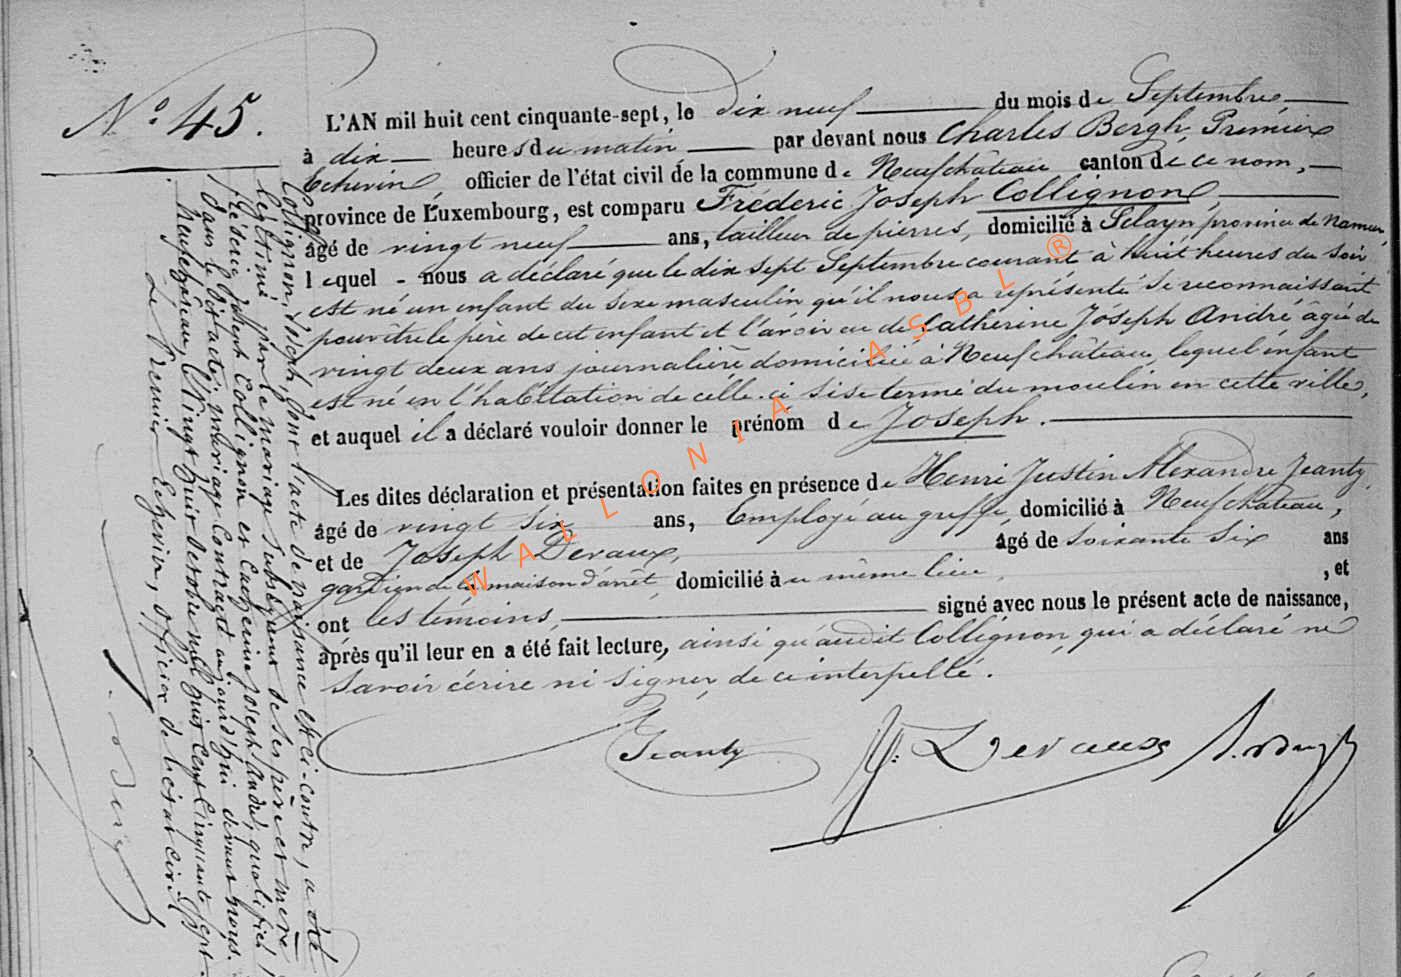 N° 45.
L'AN mil huit cent cinquante-sept, le dix neuf du mois de Septembre
à dix heures du matin par devant nous Charles Bergh, Premier
Echevin, officier de l'état civil de la commune de Neufchâteau canton de ce nom,
province de Luxembourg, est comparu Fréderic Joseph Collignon,
âgé de vingt neuf ans, tailleur de pierres, domicilié à Sclayn province de Namur,
lequel - nous a déclaré que le dix sept Septembre courant à huit heures du soir
est né un enfant du sexe masculin qu'il nous a représenté se reconnaissant
pour être le père de cet enfant et l'avoir eu de Catherine Joséph André âgée de
vingt deux ans journalière domiciliée à Neufchâteau, lequel enfant
est né en l'habitation de celle-ci sise terme du moulin en cette ville,
et auquel il a déclaré vouloir donner le prénom de Joseph.
Les dites déclaration et présentation faites en présence de Henri Justin Alexandre Jeanty,
âgé de vingt six ans, Employé au greffe, domicilié à Neufchâteau,
et de Joseph Devaux, âgé de soixante six ans
gardien de la maison d'arrêt, domicilié au même lieu, , et
ont les témoins, signé avec nous le présent acte de naissance,
après qu'il leur en a été fait lecture, ainsi qu'audit Collignon, qui a déclaré ne
savoir écrire ni signer, de ce interpellé.
Jeanty J. Devaux
Collignon, Joseph, dont l'acte de naissance est ci-contre, a été
légitimé par le mariage subséquent de ses père et mère
Fréderic Joseph Collignon et Catherine Joseph André, qualifiés
dans le dit acte, mariage contracté aujourd'hui devant nous.
Neufchâteau, Vingt huit octobre mil huit cent cinquante sept.
Le Premier Echevin, officier de l'état civil,
WALLONIA ASBL ®